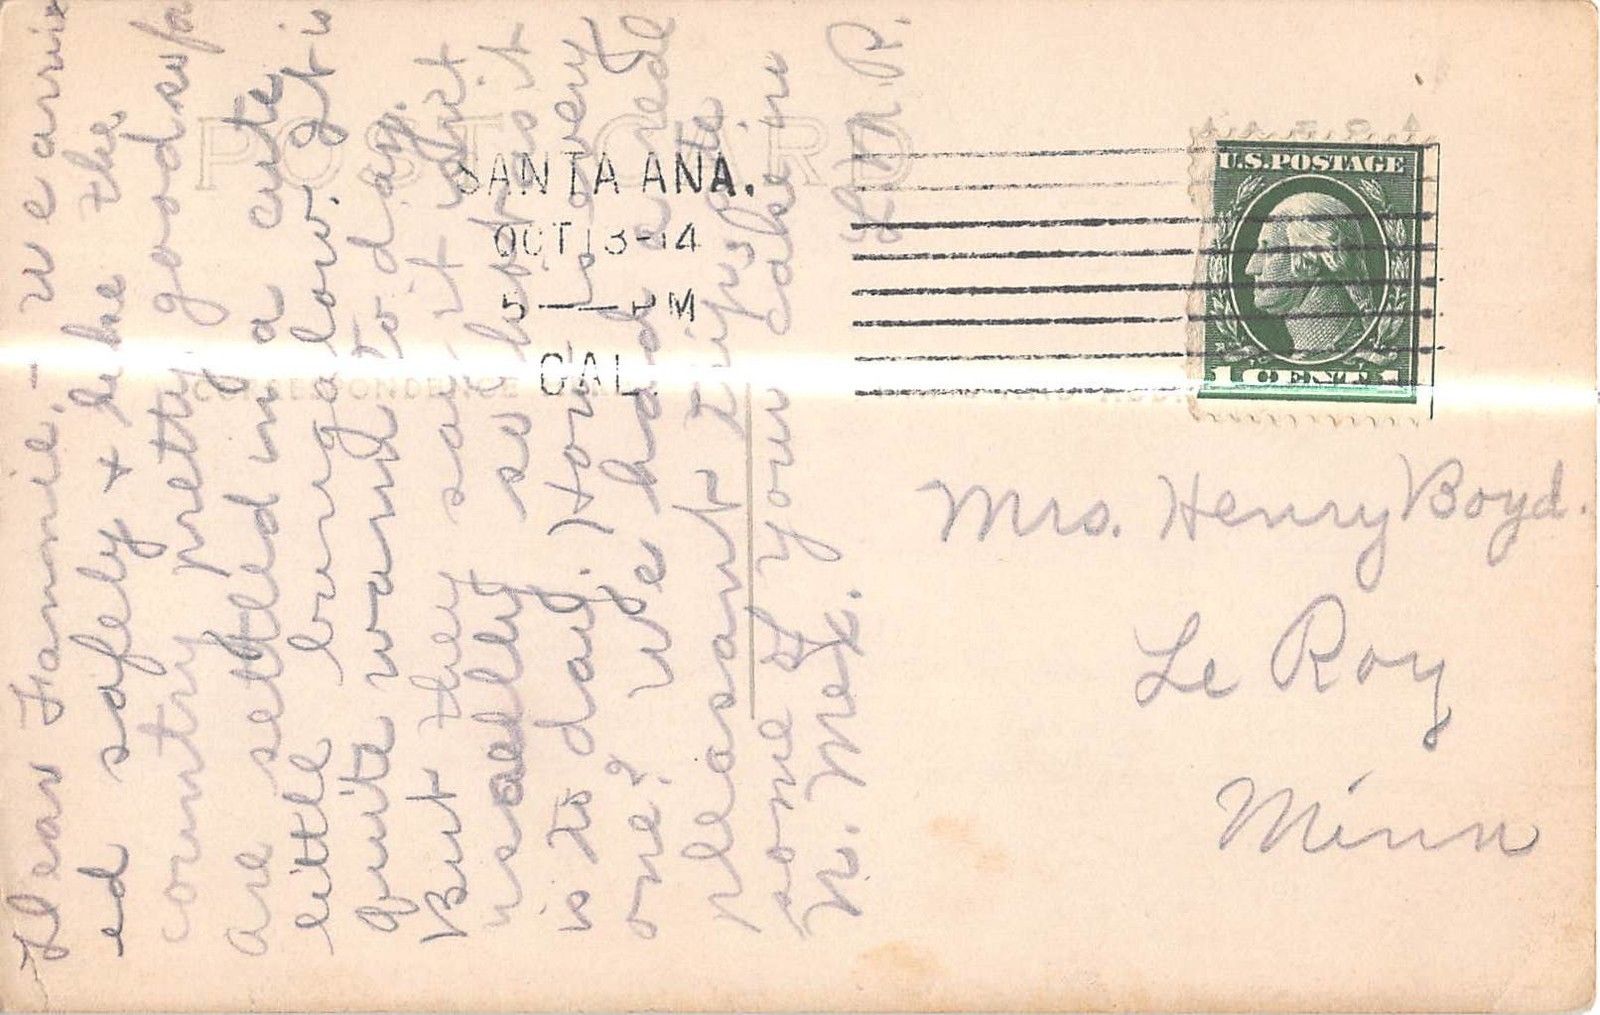 Dear Fannie, - we arriv
ed safely & like the
country pretty good so fa
are settled in a cute
little bungalow. It is
quite warm to day.
But they say it isn't
usually so hot as it
is to day. How is every
one? We had a real
pleasant trip, ate
some of your cake in
N. Mex. L. M. R.
POST CARD
CORRESPONDENCE
SANTA ANA.
OCT 13-14
5 — PM
CAL.
U.S. POSTAGE
1 CENT 1
Mrs. Henry Boyd.
Le Roy
Minn